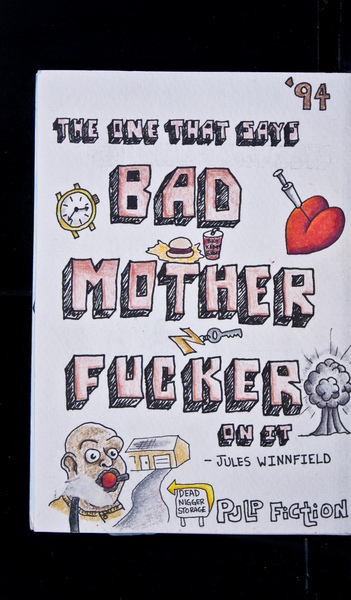 '94
THE ONE THAT SAYS
BAD
MOTHER
FUCKER
ON IT
- JULES WINNFIELD
DEAD
NIGGER
STORAGE
PULP FICTION